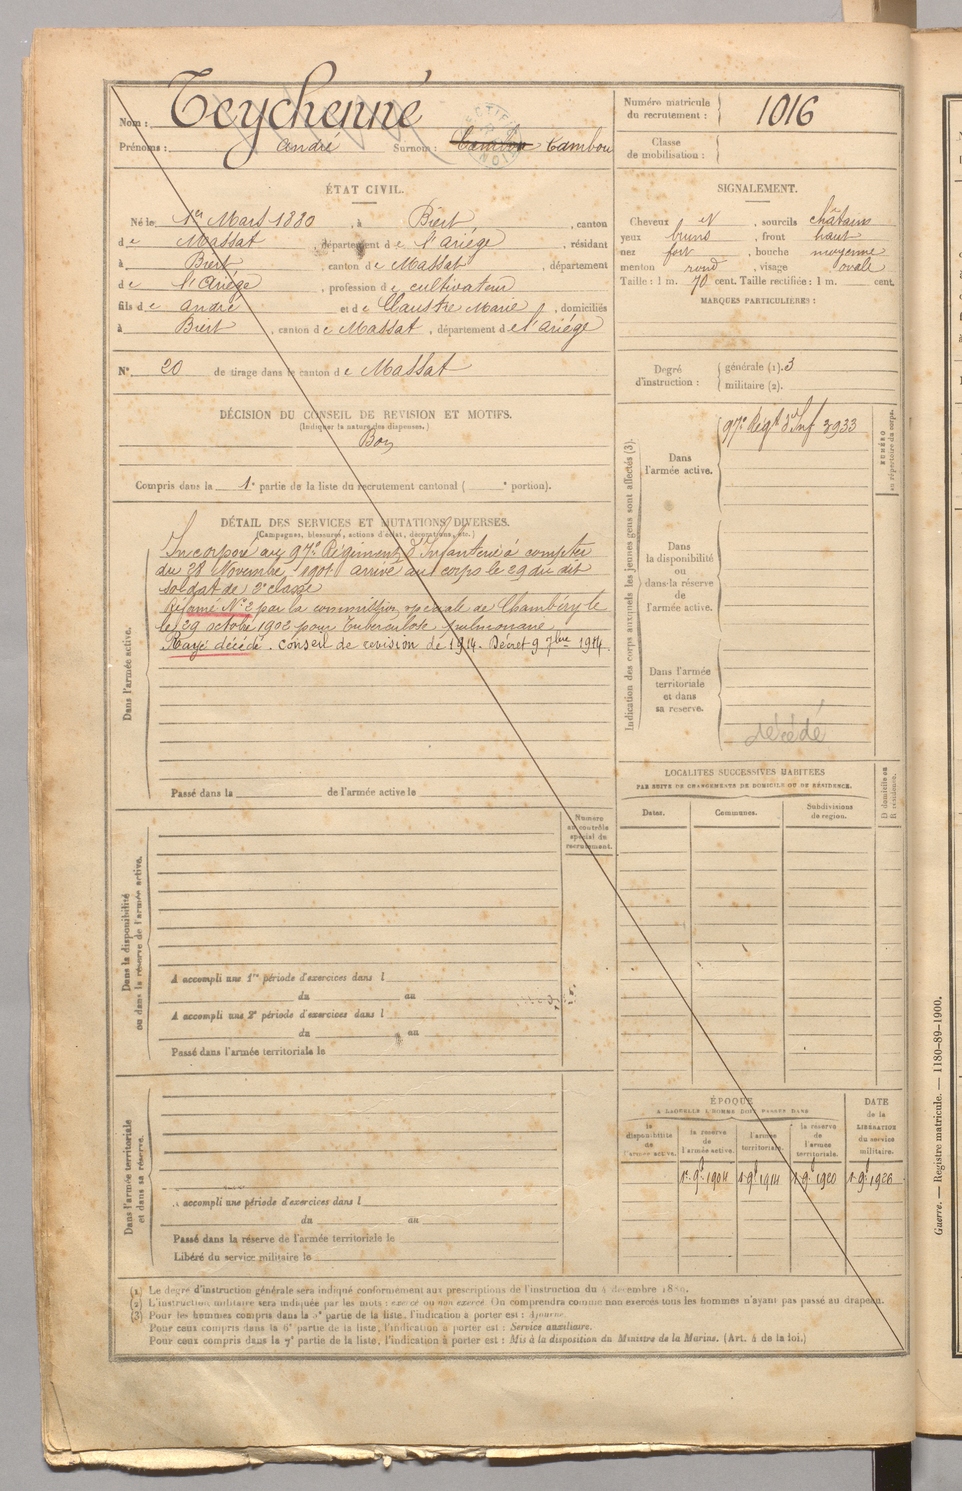 Nom : Teychenné
Prénoms : André Surnom : Cambou
Numéro matricule du recrutement : 1016
Classe de mobilisation :
ÉTAT CIVIL.
Né le 1er Mars 1880, à Biert, canton
de Massat, département de l'Ariége, résidant
à Biert, canton de Massat, département
de l'Ariége, profession de cultivateur
fils de André et de Claustre Marie, domiciliés
à Biert, canton de Massat, département de l'Ariége
N° 20 de tirage dans le canton de Massat
SIGNALEMENT.
Cheveux et, sourcils châtains
yeux bruns, front haut
nez fort, bouche moyenne
menton rond, visage ovale
Taille : 1 m. 70 cent. Taille rectifiée : 1 m. cent.
MARQUES PARTICULIÈRES :
Degré d'instruction : générale (1). 3
militaire (2).
DÉCISION DU CONSEIL DE REVISION ET MOTIFS.
(Indiquer la nature des dispenses.)
Bon
Compris dans la 1e partie de la liste du recrutement cantonal ( e portion).
DÉTAIL DES SERVICES ET MUTATIONS DIVERSES.
(Campagnes, blessures, actions d'éclat, décorations, etc.)
Dans l'armée active.
Incorporé au 97e Régiment d'Infanterie à compter
du 28 Novembre 1901 arrivé au corps le 29 du dit
soldat de 2e classe
Réformé N° 2 par la commission spéciale de Chambéry le
le 29 octobre 1902 pour Tuberculose pulmonaire
Rayé décédé. Conseil de revision de 1914. Décret 9 7bre 1914.
Passé dans la de l'armée active le
Indication des corps auxquels les jeunes gens sont affectés (3).
Dans l'armée active.
97e Régt d'Inf 3933
NUMÉRO au répertoire du corps.
Dans la disponibilité ou dans la réserve de l'armée active.
Dans l'armée territoriale et dans sa reserve.
décédé
LOCALITÉS SUCCESSIVES HABITÉES
PAR SUITE DE CHANGEMENTS DE DOMICILE OU DE RÉSIDENCE.
Dates. Communes. Subdivisions de région. D domicile ou R résidence.
Dans la disponibilité ou dans la réserve de l'armée active.
Numéro au contrôle spécial du recrutement.
A accompli une 1re période d'exercices dans l
du au
A accompli une 2e période d'exercices dans l
du au
Passé dans l'armée territoriale le
Dans l'armée territoriale et dans sa réserve.
accompli une période d'exercices dans l
du au
Passé dans la réserve de l'armée territoriale le
Libéré du service militaire le
ÉPOQUE
A LAQUELLE L'HOMME DOIT PASSER DANS
la disponibilité de l'armée active.
la réserve de l'armée active.
l'armée territoriale.
la réserve de l'armée territoriale.
DATE de la LIBÉRATION du service militaire.
1er 9b 1904 1er 9b 1914 1er 9b 1920 1er 9b 1926
(1) Le degré d'instruction générale sera indiqué conformément aux prescriptions de l'instruction du 4 décembre 1889.
(2) L'instruction militaire sera indiquée par les mots : exercé ou non exercé On comprendra comme non exercés tous les hommes n'ayant pas passé au drapeau.
(3) Pour les hommes compris dans la 5e partie de la liste, l'indication à porter est : Ajourné.
Pour ceux compris dans la 6e partie de la liste, l'indication à porter est : Service auxiliaire.
Pour ceux compris dans la 7e partie de la liste, l'indication à porter est : Mis à la disposition du Ministre de la Marine. (Art. 4 de la loi.)
Guerre. — Registre matricule. — 1180-89-1900.